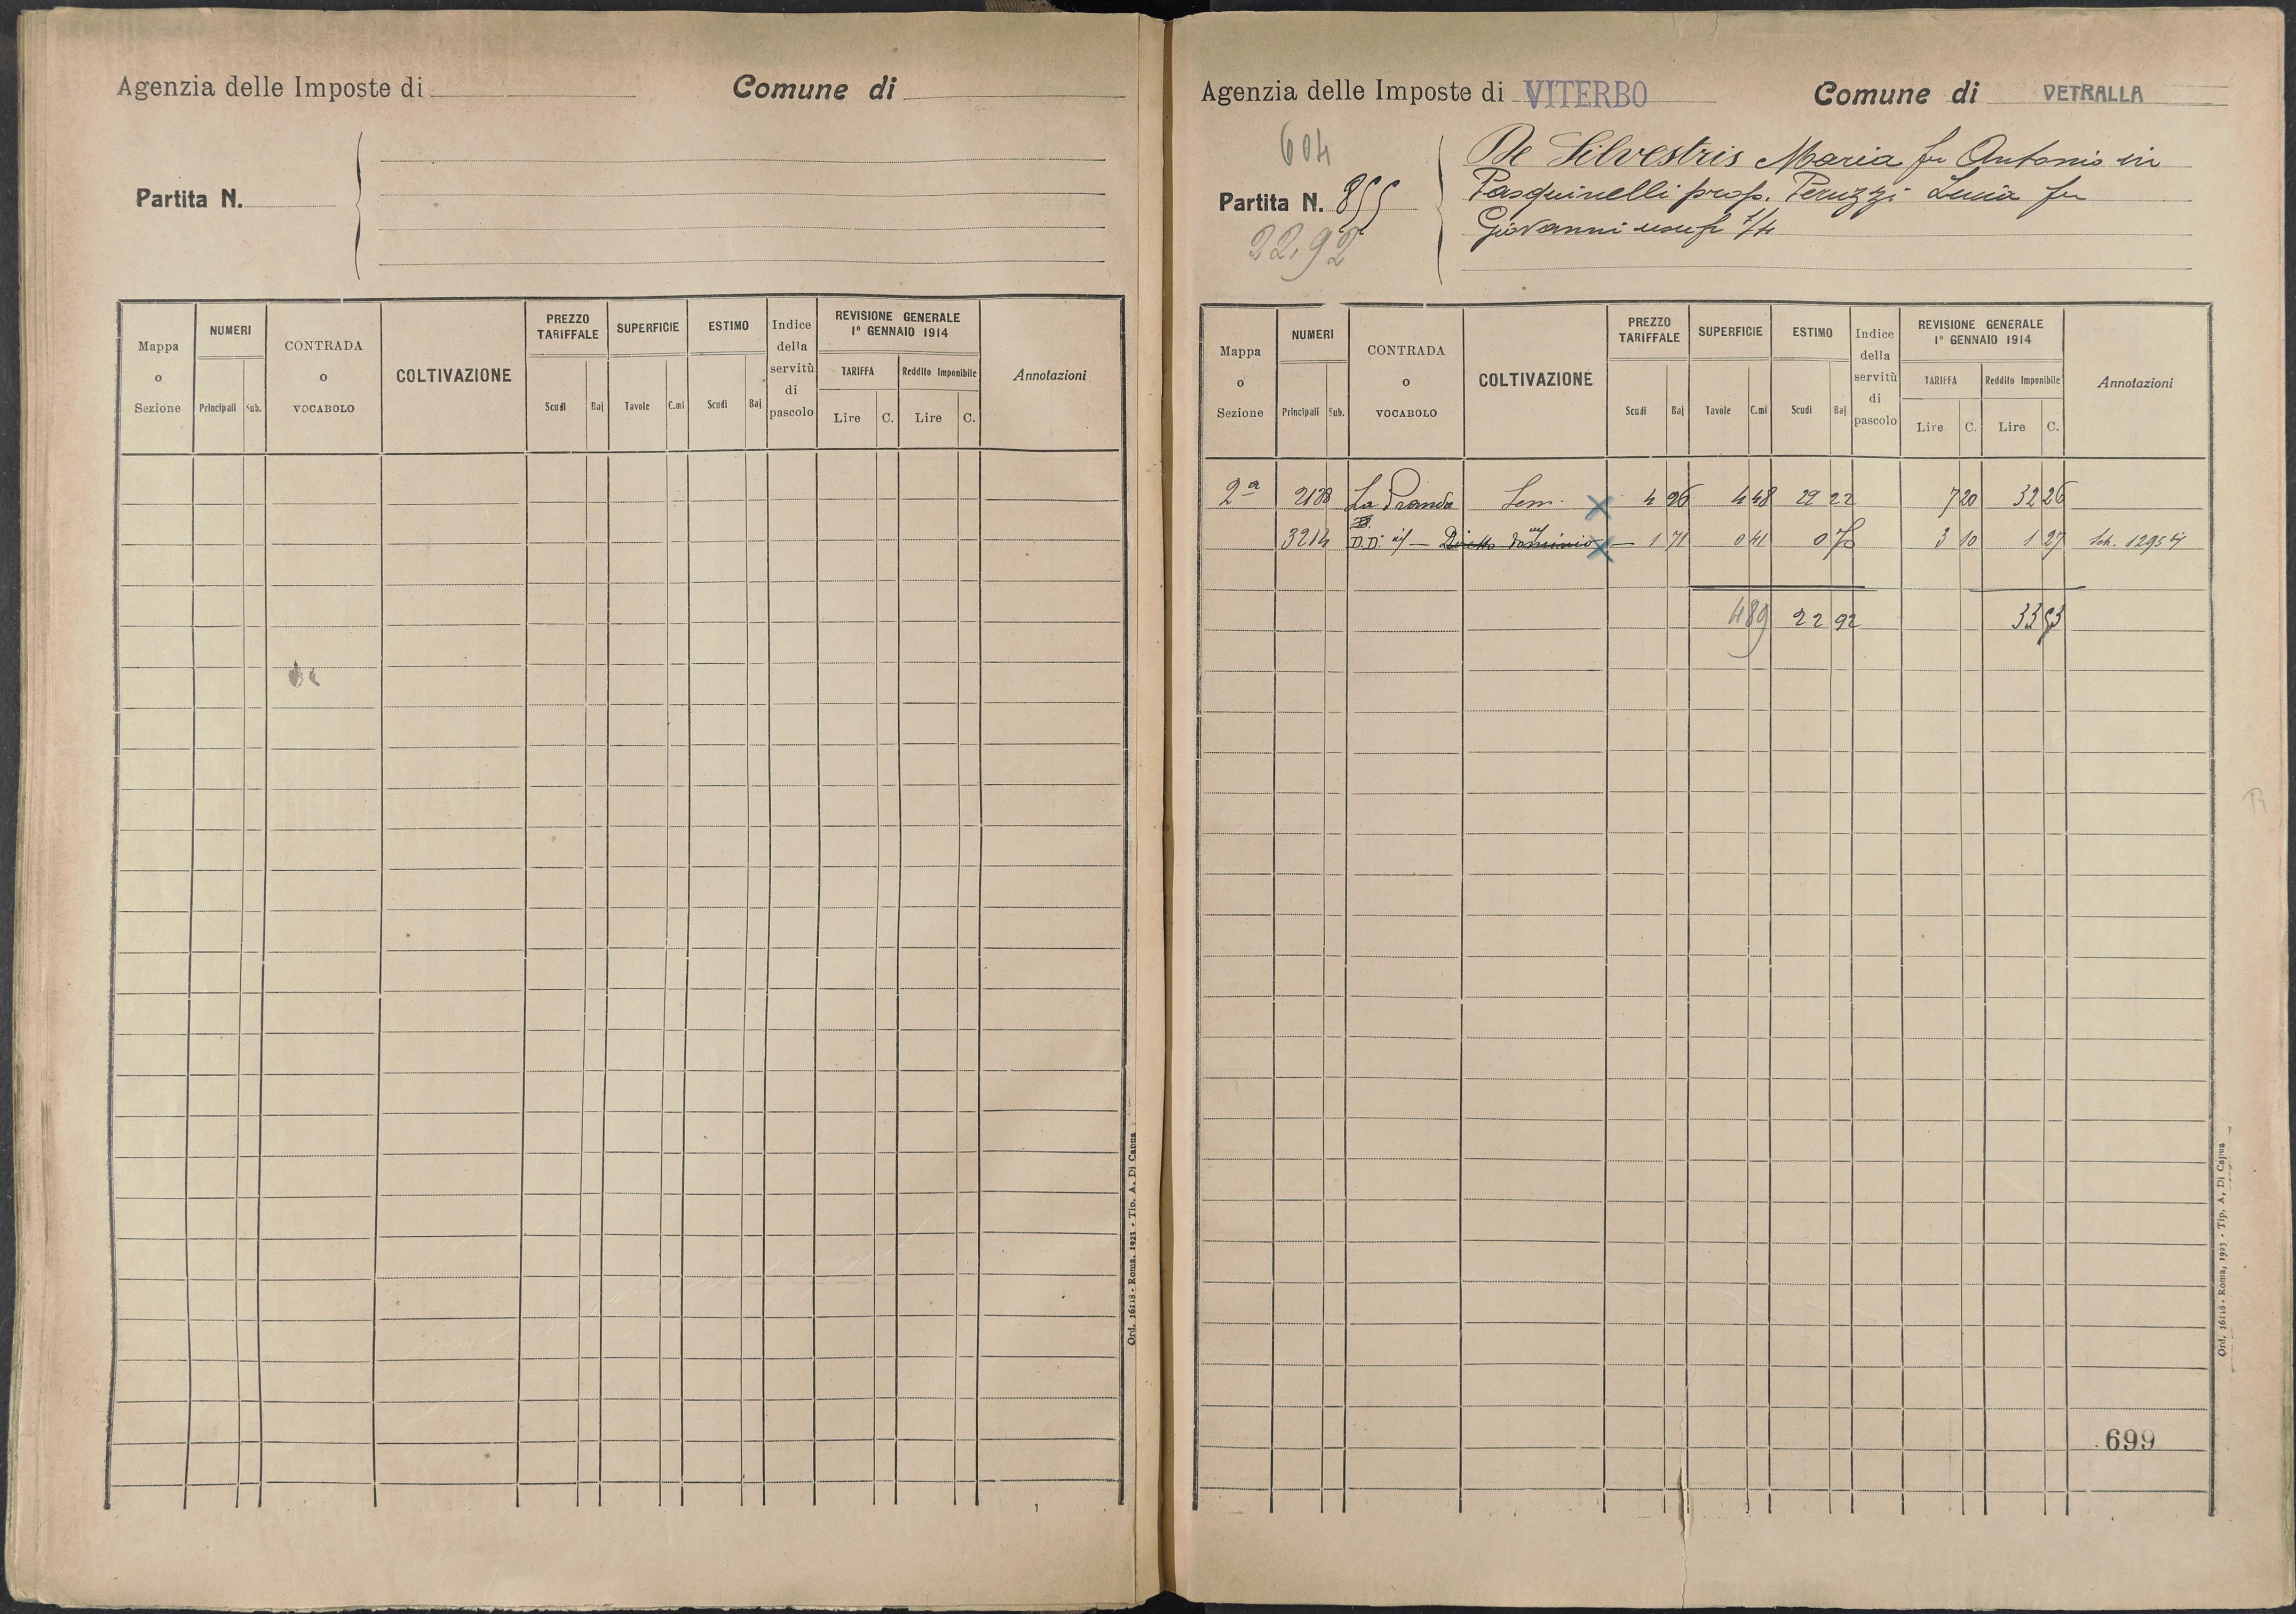 Agenzia delle Imposte di
Comune di
Partita N.
Mappa o Sezione
NUMERI
Principali
Sub.
CONTRADA o VOCABOLO
COLTIVAZIONE
PREZZO TARIFFALE
Scudi
Baj
SUPERFICIE
Tavole
C.mi
ESTIMO
Scudi
Baj
Indice della servitù di pascolo
REVISIONE GENERALE 1° GENNAIO 1914
TARIFFA
Lire
C.
Reddito Imponibile
Lire
C.
Annotazioni
Ord. 16118 - Roma, 1923 - Tip. A. Di Capua
Agenzia delle Imposte di VITERBO
Comune di VETRALLA
604
Partita N. 855
22,92
De Silvestris Maria fu Antonio in
Pasquinelli prop. Peruzzi Lucia fu
Giovanni usufr 1/4
Mappa o Sezione
NUMERI
Principali
Sub.
CONTRADA o VOCABOLO
COLTIVAZIONE
PREZZO TARIFFALE
Scudi
Baj
SUPERFICIE
Tavole
C.mi
ESTIMO
Scudi
Baj
Indice della servitù di pascolo
REVISIONE GENERALE 1° GENNAIO 1914
TARIFFA
Lire
C.
Reddito Imponibile
Lire
C.
Annotazioni
2a 2128 La Sem. 4 96 4 48 22 22 7 20 32 26
3214 D.D. Diretto dominio 1 71 0 41 0 70 3 10 1 27 Sch. 12954
4 89 22 92 33 53
699
Ord. 16118 - Roma, 1923 - Tip. A. Di Capua